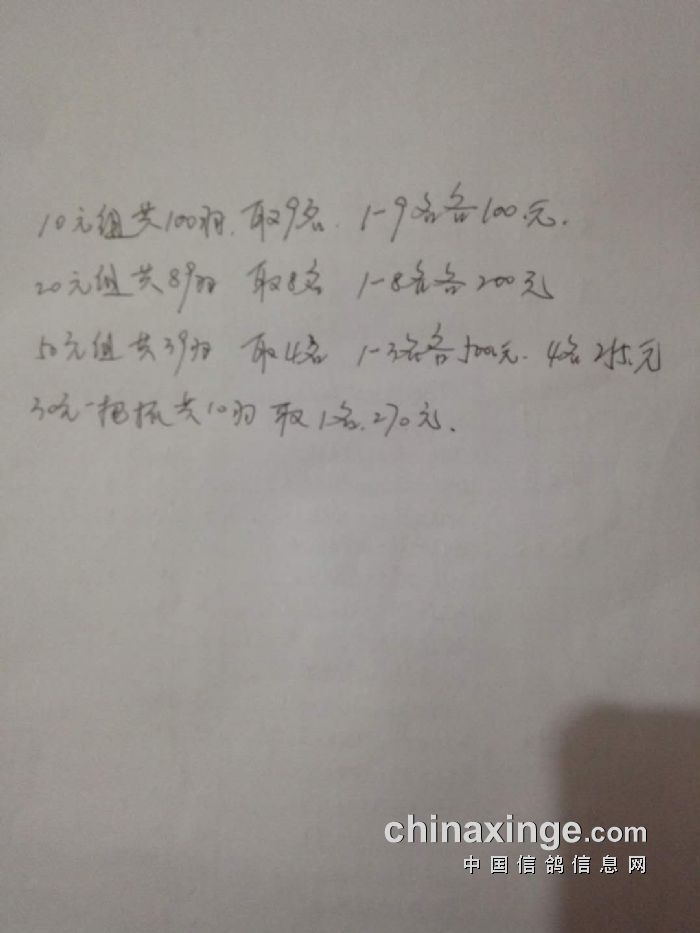 10元组共100羽.取9名.1-9名各100元.
20元组共89羽 取8名 1-8名各200元
50元组共39羽 取4名 1-3名各500元.4名255元
30元一把抓共10羽取1名.270元.
chinaxinge.com
中国信鸽信息网